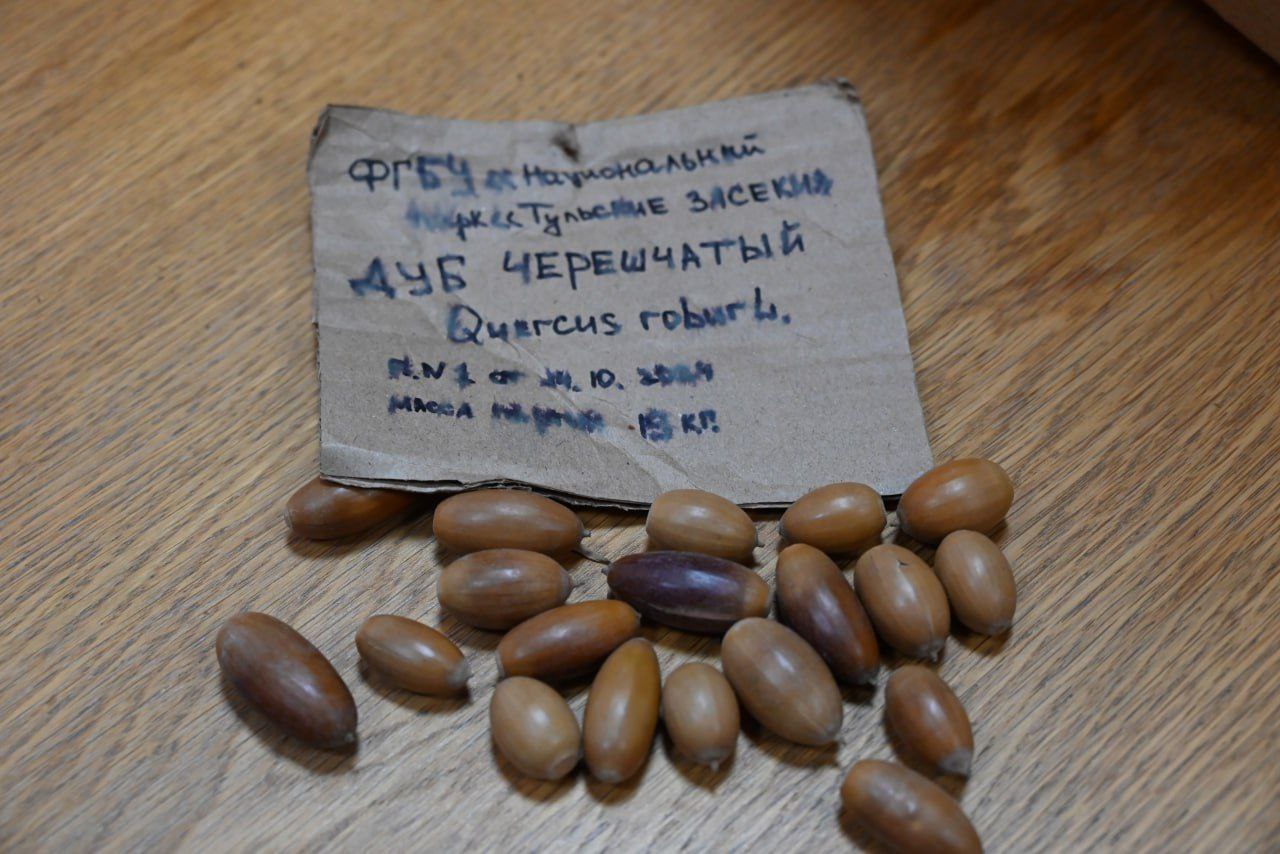 ФГБУ «Национальный
парк «Тульские ЗАСЕКИ»
ДУБ ЧЕРЕШЧАТЫЙ
Quercus robur L.
П.N 1 от 24.10. 2024
МАССА партии КГ.